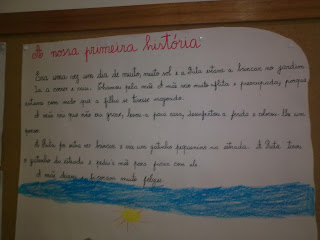 A nossa primeira história
Era uma vez um dia de muito, muito sol e a Rita estava a brincar no jardim.
Caiu a correr e caiu. Chamou pela mãe. A mãe veio muito aflita e preocupada, porque
estava com medo que a filha se tivesse magoado.
A mãe viu que não era grave, levou-a para casa, desinfetou a ferida e colocou-lhe um
penso.
A Rita foi outra vez brincar e viu um gatinho pequenino na estrada. A Rita tirou
o gatinho da estrada e pediu à mãe para ficar com ele.
A mãe deixou e ficaram muito felizes.